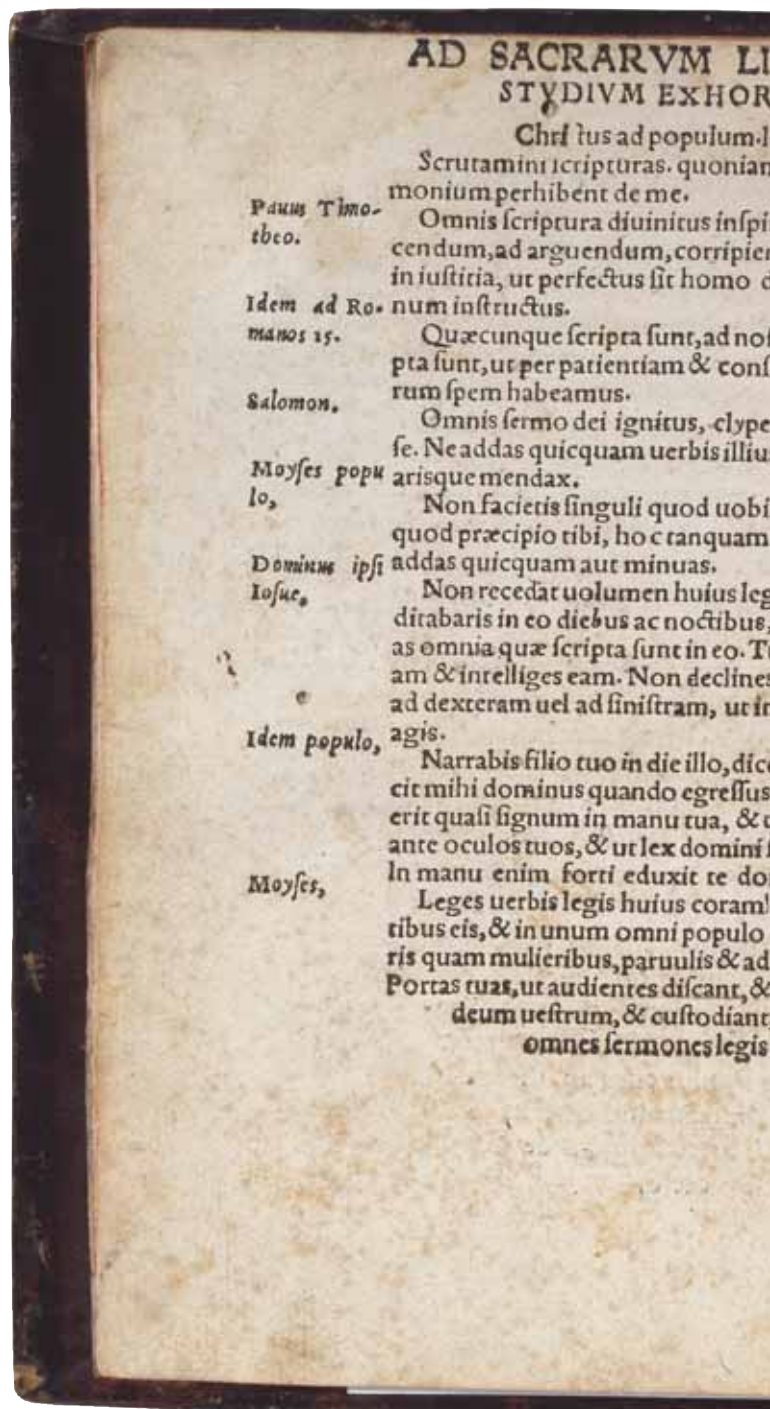 AD SACRARVM LI
STVDIVM EXHOR
Chriſtus ad populum.I
Scrutamini ſcripturas. quoniam
monium perhibent de me.
Paulus Timo-
theo.
Omnis ſcriptura diuinitus inſpi
cendum, ad arguendum, corripien
in iuſtitia, ut perfectus ſit homo d
Idem ad Ro-
manos 15.
num inſtructus.
Quæcunque ſcripta ſunt, ad noſ
pta ſunt, ut per patientiam & conſ
rum ſpem habeamus.
Salomon.
Omnis ſermo dei ignitus, clype
ſe. Ne addas quicquam uerbis illius
arisque mendax.
Moyſes popu
lo,
Non facietis ſinguli quod uobi
quod præcipio tibi, hoc tanquam
addas quicquam aut minuas.
Dominus ipſi
Ioſue,
Non recedat uolumen huius leg
ditabaris in eo diebus ac noctibus,
as omnia quæ ſcripta ſunt in eo. Tu
am & intelliges eam. Non declines
ad dexteram uel ad ſiniſtram, ut in
agis.
Idem populo,
Narrabis filio tuo in die illo, dice
cit mihi dominus quando egreſſus
erit quaſi ſignum in manu tua, & q
ante oculos tuos, & ut lex domini ſ
In manu enim forti eduxit te do
Moyſes,
Leges uerbis legis huius coram
tibus eis, & in unum omni populo
ris quam mulieribus, paruulis & ad
Portas tuas, ut audientes diſcant, &
deum ueſtrum, & cuſtodiant,
omnes ſermones legis